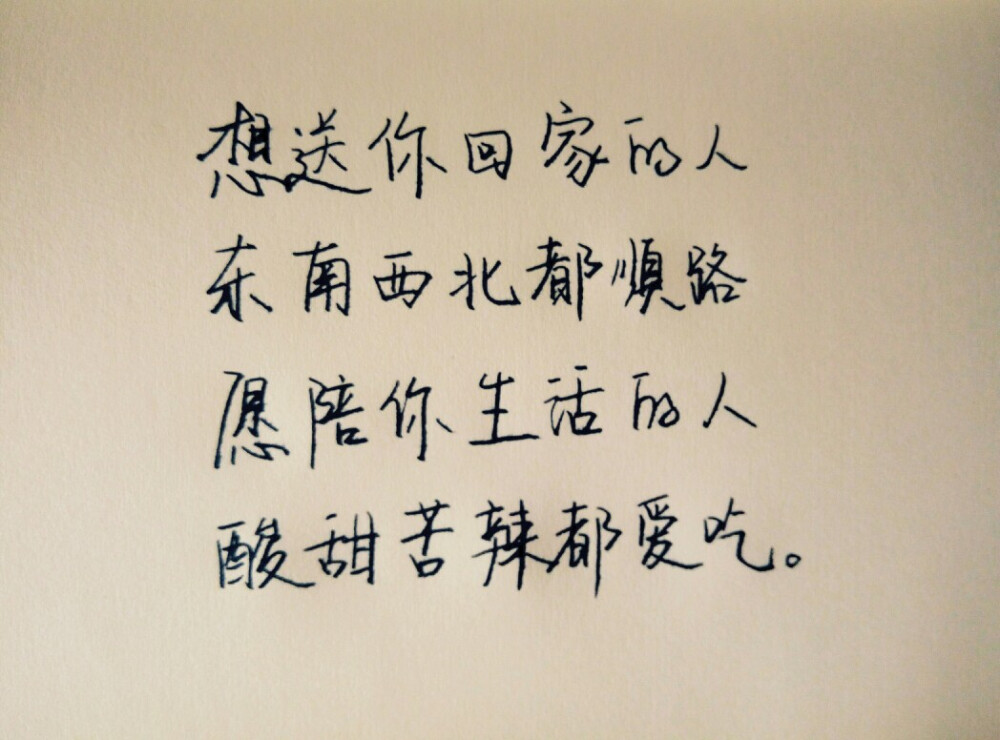 想送你回家的人
东南西北都顺路
愿陪你生活的人
酸甜苦辣都爱吃。